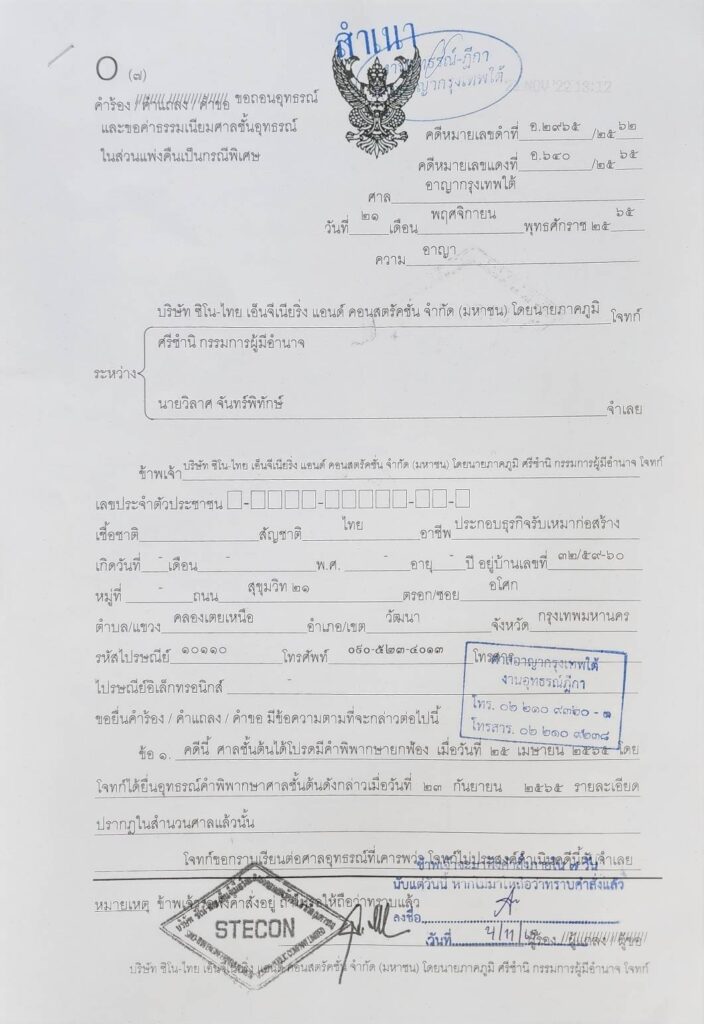 สำเนา
○ (๗)
คำร้อง / คำแถลง / คำขอ ขอถอนอุทธรณ์
และขอค่าธรรมเนียมศาลชั้นอุทธรณ์
ในส่วนแพ่งคืนเป็นกรณีพิเศษ
NOV '22
คดีหมายเลขดำที่ อ.๒๙๖๕ /๒๕ ๖๒
คดีหมายเลขแดงที่ อ.๖๔๐ /๒๕ ๖๕
ศาล อาญากรุงเทพใต้
วันที่ ๒๑ เดือน พฤศจิกายน พุทธศักราช ๒๕ ๖๕
ความ อาญา
บริษัท ซิโน-ไทย เอ็นจีเนียริ่ง แอนด์ คอนสตรัคชั่น จำกัด (มหาชน) โดยนายภาคภูมิ โจทก์
ศรีชำนิ กรรมการผู้มีอำนาจ
ระหว่าง
นายวิลาศ จันทร์พิทักษ์ จำเลย
ข้าพเจ้า บริษัท ซิโน-ไทย เอ็นจีเนียริ่ง แอนด์ คอนสตรัคชั่น จำกัด (มหาชน) โดยนายภาคภูมิ ศรีชำนิ กรรมการผู้มีอำนาจ โจทก์
เลขประจำตัวประชาชน
เชื้อชาติ สัญชาติ ไทย อาชีพ ประกอบธุรกิจรับเหมาก่อสร้าง
เกิดวันที่ - เดือน - พ.ศ. - อายุ - ปี อยู่บ้านเลขที่ ๓๒/๕๙-๖๐
หมู่ที่ - ถนน สุขุมวิท ๒๑ ตรอก/ซอย อโศก
ตำบล/แขวง คลองเตยเหนือ อำเภอ/เขต วัฒนา จังหวัด กรุงเทพมหานคร
รหัสไปรษณีย์ ๑๐๑๑๐ โทรศัพท์ ๐๙๐-๕๒๓-๔๐๑๓ โทรสาร
ไปรษณีย์อิเล็กทรอนิกส์ -
ศาลอาญากรุงเทพใต้
งานอุทธรณ์ฎีกา
โทร. ๐๒ ๒๑๐ ๙๓๒๐ - ๑
โทรสาร. ๐๒ ๒๑๐ ๙๒๓๘
ขอยื่นคำร้อง / คำแถลง / คำขอ มีข้อความตามที่จะกล่าวต่อไปนี้
ข้อ ๑. คดีนี้ ศาลชั้นต้นได้โปรดมีคำพิพากษายกฟ้อง เมื่อวันที่ ๒๕ เมษายน ๒๕๖๕ โดย
โจทก์ได้ยื่นอุทธรณ์คำพิพากษาศาลชั้นต้นดังกล่าวเมื่อวันที่ ๒๓ กันยายน ๒๕๖๕ รายละเอียด
ปรากฏในสำนวนศาลแล้วนั้น
โจทก์ขอกราบเรียนต่อศาลอุทธรณ์ที่เคารพว่า โจทก์ไม่ประสงค์ดำเนินคดีนี้กับจำเลย
นับแต่วันนี้ หากไม่มาให้ถือว่าทราบคำสั่งแล้ว
หมายเหตุ ข้าพเจ้ารอฟังคำสั่งอยู่ ถ้าไม่รอให้ถือว่าทราบแล้ว
ลงชื่อ
STECON
วันที่ ผู้ร้อง / ผู้แถลง / ผู้ขอ
บริษัท ซิโน-ไทย เอ็นจีเนียริ่ง แอนด์ คอนสตรัคชั่น จำกัด (มหาชน) โดยนายภาคภูมิ ศรีชำนิ กรรมการผู้มีอำนาจ โจทก์